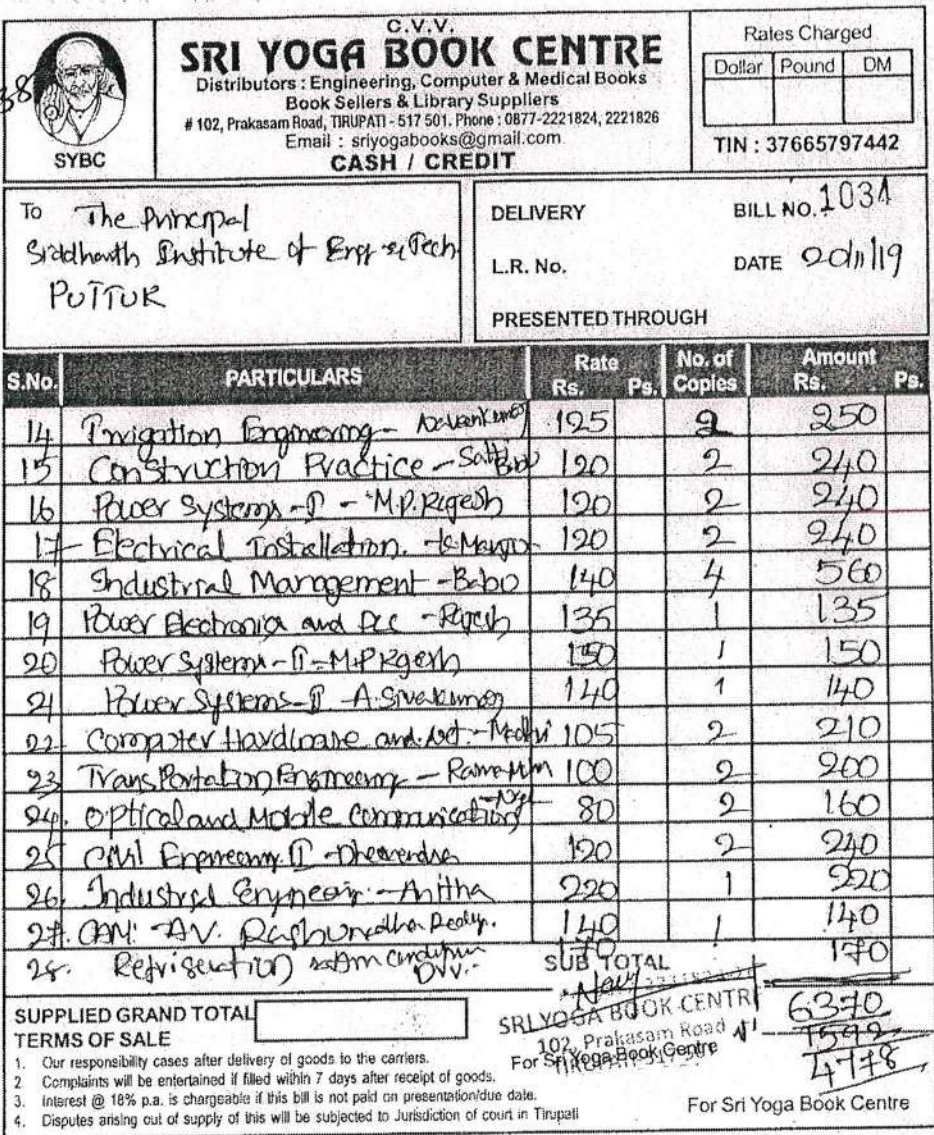 38
SYBC
C.V.V.
SRI YOGA BOOK CENTRE
Distributors : Engineering, Computer & Medical Books
Book Sellers & Library Suppliers
# 102, Prakasam Road, TIRUPATI - 517 501. Phone : 0877-2221824, 2221826
Email : sriyogabooks@gmail.com
CASH / CREDIT
Rates Charged
Dollar Pound DM
TIN : 37665797442
To The Principal
Siddharth Institute of Engg & Tech
PUTTUR
DELIVERY BILL NO. 1034
L.R. No. DATE 20/11/19
PRESENTED THROUGH
S.No. PARTICULARS Rate Rs. Ps. No. of Copies Amount Rs. Ps.
14 Irrigation Engineering - 125 2 250
15 Construction Practice - Babu 120 2 240
16 Power Systems - M.P. Rajesh 120 2 240
17 Electrical Installation. 120 2 240
18 Industrial Management - Babu 140 4 560
19 Power Electronics and - Rajesh 135 1 135
20 Power Systems - II - M.P Rajesh 150 1 150
21 Power Systems - A. Sivakumar 140 1 140
22 Computer Hardware and Net. - 105 2 210
23 Transportation Engineering - 100 2 200
24. Optical and Mobile Communication 80 2 160
25 Civil Engineering II - Dheerendra 120 2 240
26. Industrial Engineering - Anitha 220 1 220
27. CAM: - A.V. Raghunadha Reddy. 140 1 140
28. Refrigeration 170 170
SUB TOTAL
6370
1592
4778
SUPPLIED GRAND TOTAL
SRI YOGA BOOK CENTRE
102, Prakasam Road
For Sri Yoga Book Centre
TERMS OF SALE
1. Our responsibility cases after delivery of goods to the carriers.
2 Complaints will be entertained if filled within 7 days after receipt of goods.
3. Interest @ 18% p.a. is chargeable if this bill is not paid on presentation/due date.
4. Disputes arising out of supply of this will be subjected to Jurisdiction of court in Tirupati
For Sri Yoga Book Centre